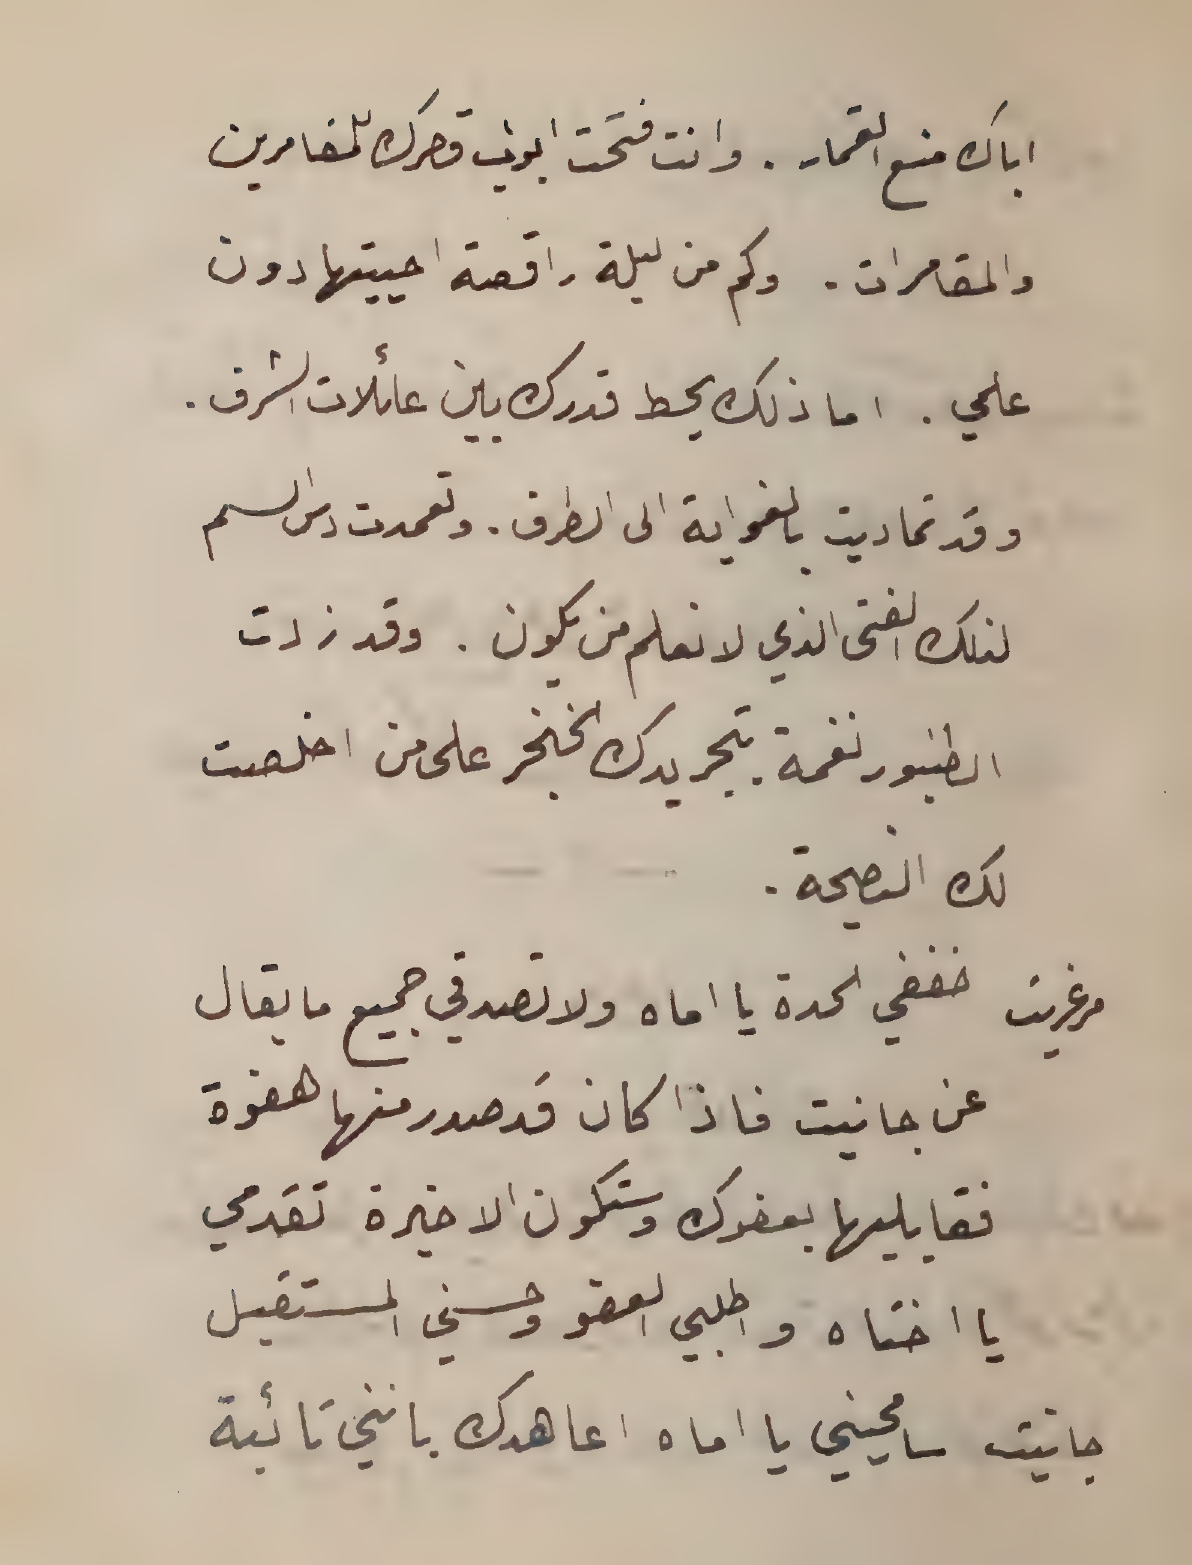 اباك منع القمار . وانت فتحت ابواب قصرك للمقامرين
والمقامرات . وكم من ليلة راقصة احييتها دون
علمي . اما ذلك يحط قدرك بين عائلات الشرف .
وقد تماديت بالغواية الى الطرف . وتعمدت دس السم
لذلك الفتى الذي لا نعلم من يكون . وقد زدت
الطنبور نغمة . بتجريدك الخنجر على من اخلصت
لك النصيحة .
مرغريت خففي الحدة يا اماه ولا تصدقي جميع ما يقال
عن جانيت فاذا كان قد صدر منها هفوة
فقابليها بعفوك وستكون الاخيرة تقدمي
يا اختاه واطلبي العفو وحسني المستقبل
جانيت سامحيني يا اماه اعاهدك بانني تائبة